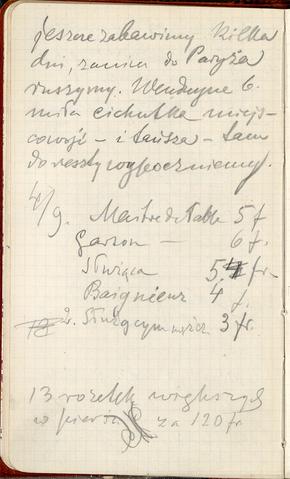 jeszcze zabawimy kilka
dni, zanim do Paryża
ruszymy. Wenduyne b.
miła cichutka miejs-
cowość – i tańsza – tam
do reszty wypoczniemy.
4/9. Maitre de table 5 f
Garson — 6 fr.
Służąca 5. fr.
Baigneur 4 f.
Służącym 3 fr.
13 rozetek większych
w pierś za 120 fr